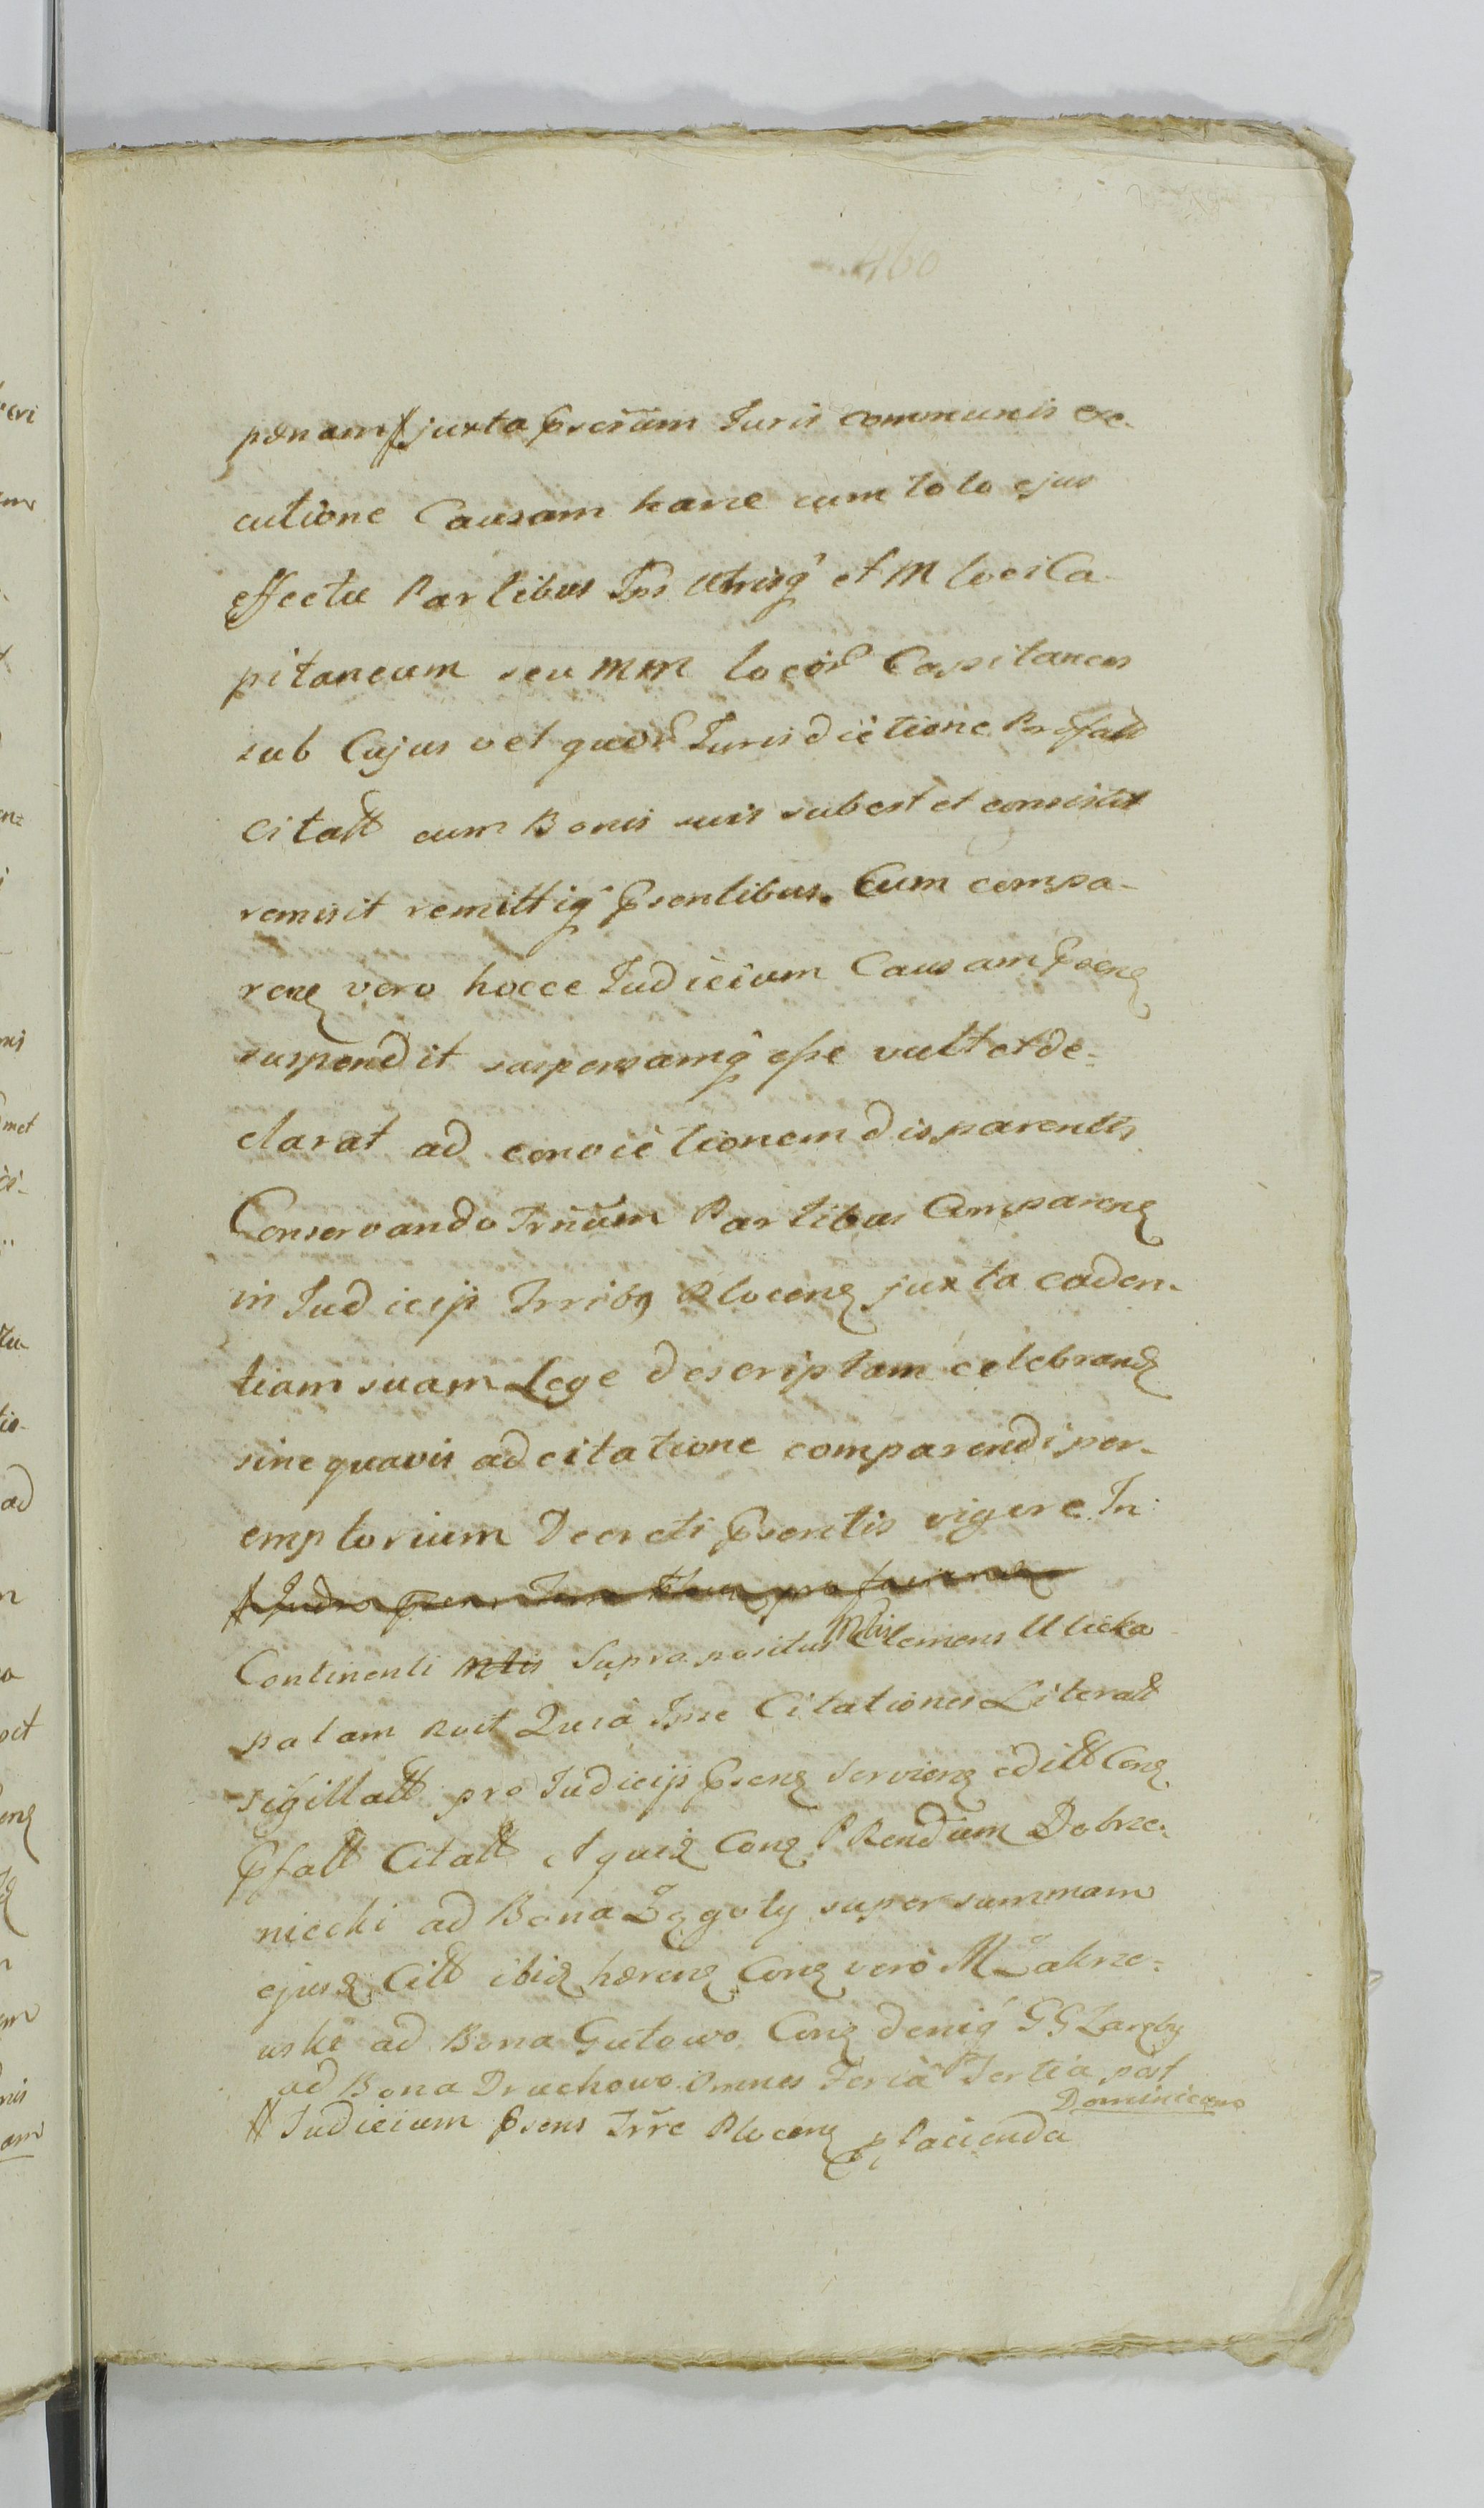 460
pænam juxta Pscrũm Juris communis exe-
cutione Causam hanc cum toto ejus
effectu Partibus Ips Utrisq́ et M loci Ca-
pitaneum seu MM locor Capitaneos
sub Cujus vel quor Jurisdictione Præfatt
Citatt cum Bonis suis subest et consistit
remisit remittiq́ Psentibus. Cum compa-
ren vero hocce Judicium Causam Psen
suspendit suspensamq́ esse vult et de-
clarat ad convictionem disparentis
Conservando Trnũm Partibus Comparen
in Judicijs Trribq Plocen juxta caden-
tiam suam Lege descriptam celebrand
sine quavis adcitatione comparendi per-
emptorium Decreti Psentis vigore In:
Continenti Ntis Supra positus Nbis Clemens Ulicka
palam Rvit Quia Ipse Citationes Literatt
sigillatt pro Judicijs Psen Servien editt Con
Pfatt Citatt et quid Con PRendum Dobrze-
niecki ad Bona Zągoty super summam
ejusd Citt ibid hæren Con vero M Zakrze-
wski ad Bona Gutowo Con deniq́ GG Zaręby
ad Bona Druchowo omnes Feria Tertia post
Dominicam
Judicium Psens Trre Plocen P facienda